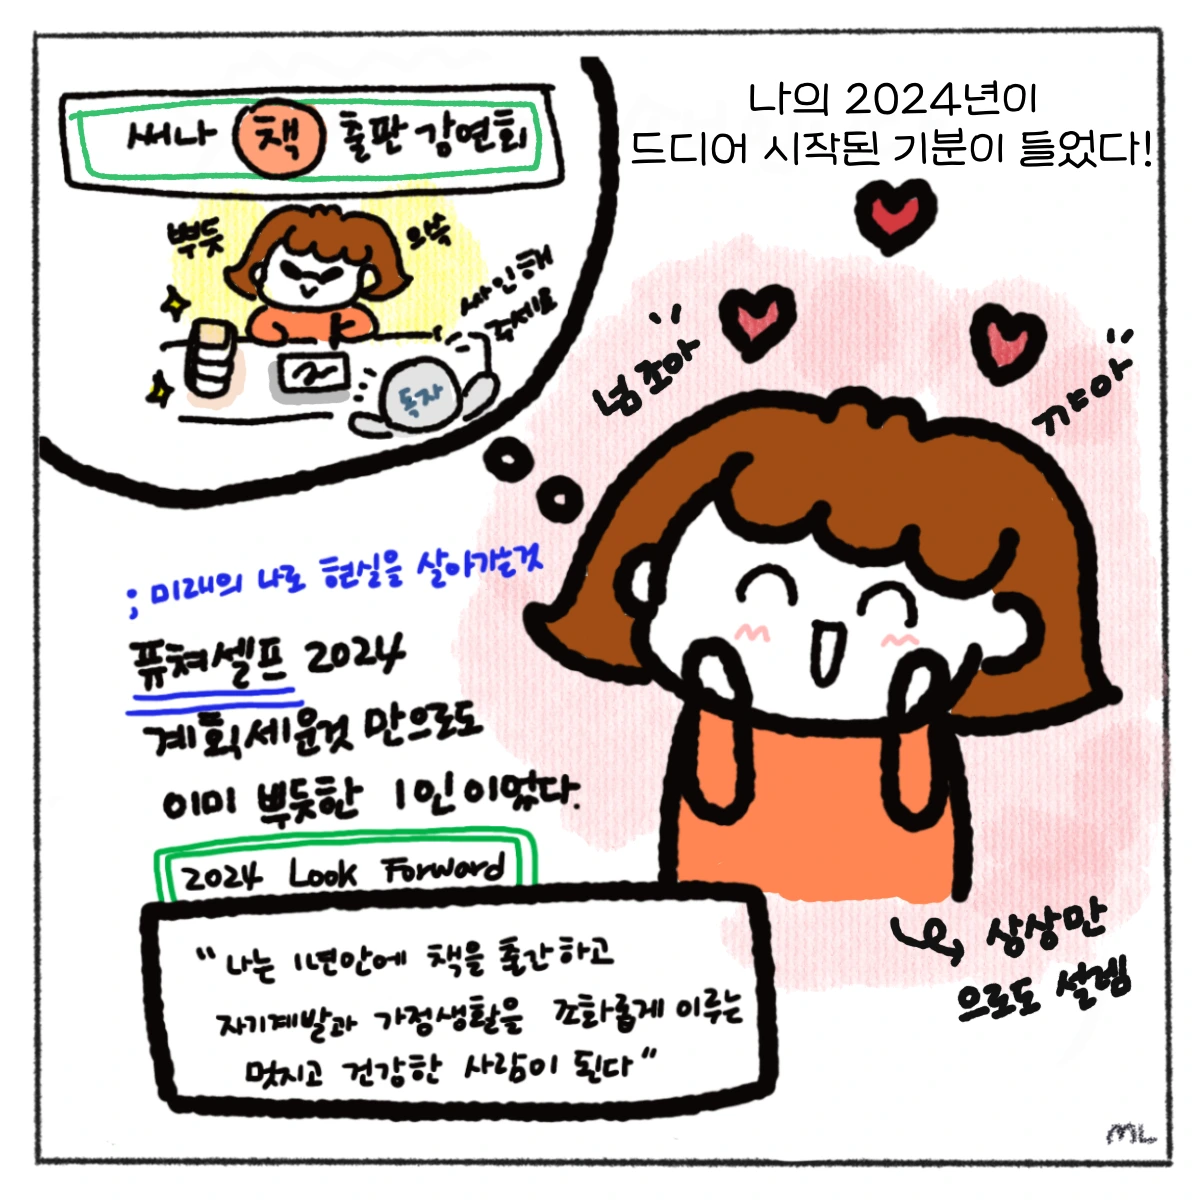 나의 2024년이
드디어 시작된 기분이 들었다!
써나 책 출판 강연회
뿌듯
으쓱
싸인해
주세요
독자
넘 조아
꺄아
; 미래의 나로 현실을 살아가는것
퓨쳐셀프 2024
계획세운것 만으로도
이미 뿌듯한 1인이었다.
2024 Look Forward
"나는 1년안에 책을 출간하고
자기계발과 가정생활을 조화롭게 이루는
멋지고 건강한 사람이 된다"
상상만
으로도 설렘
ML